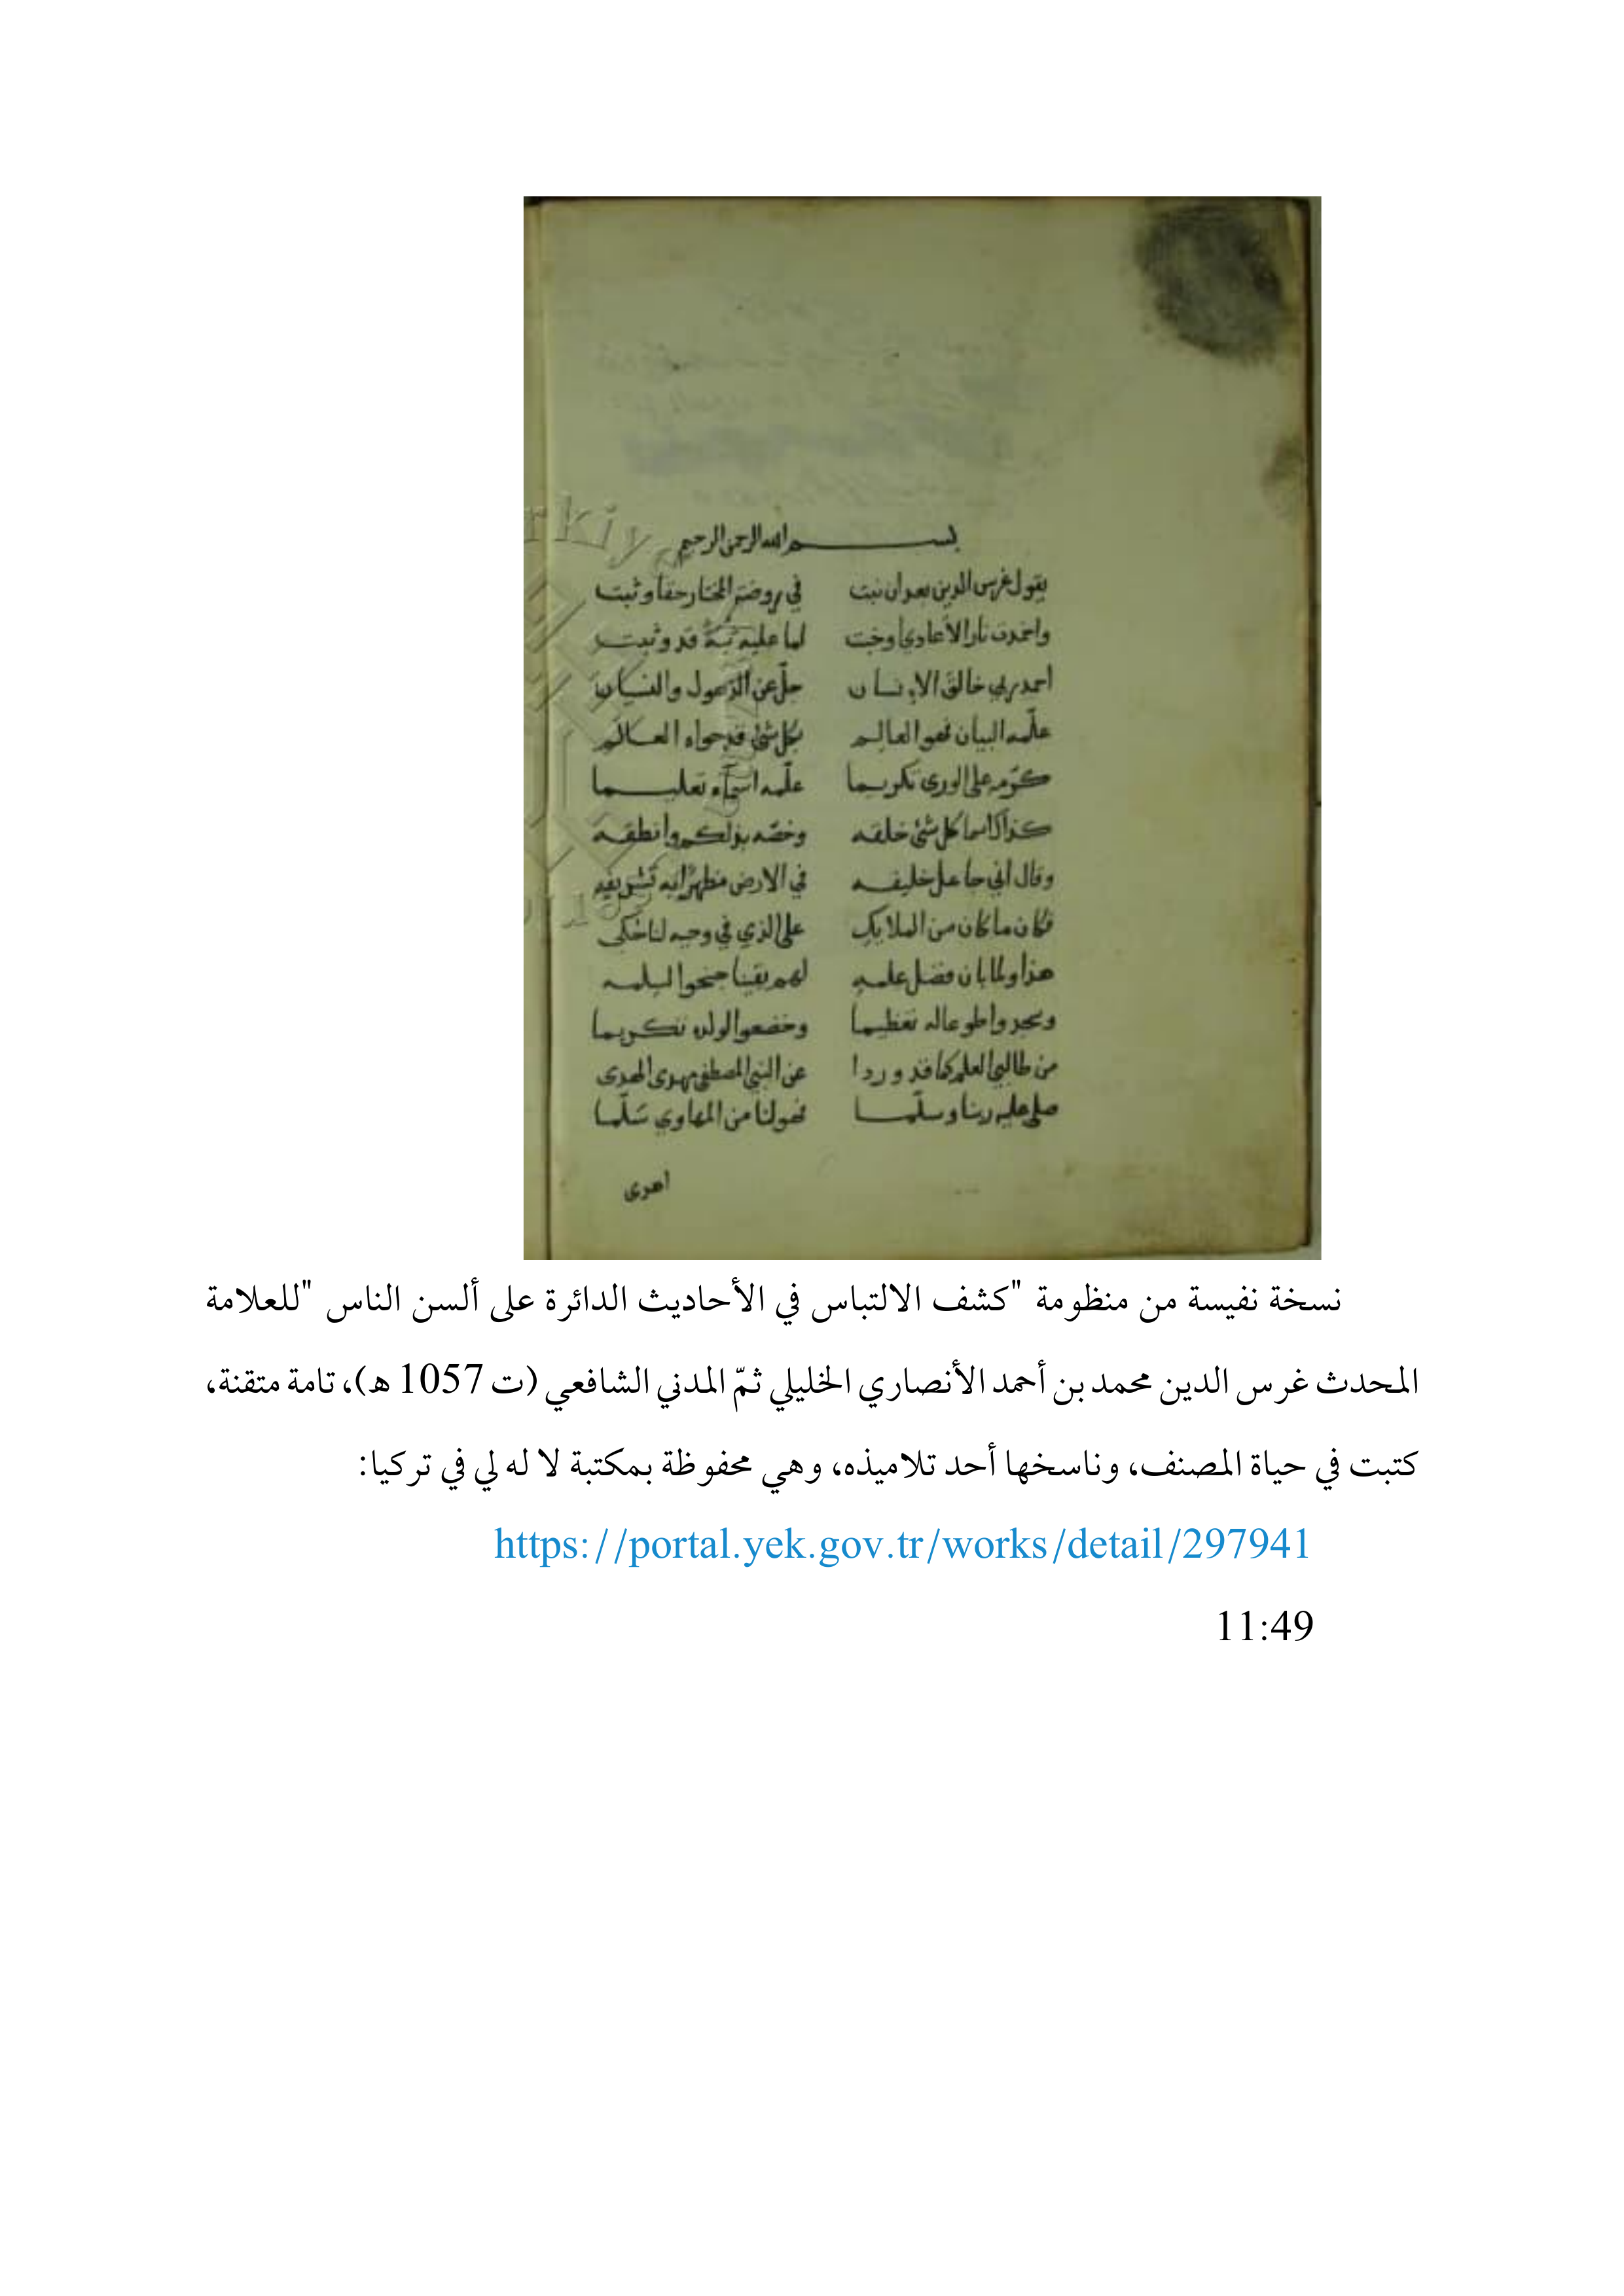 بسم الله الرحمن الرحيم
يقول غرس الدين بعد ان نبت في روضة المختار حقا وثبت
واخمدت نار الأعادي وخبت لما عليه قد وثبت
احمد ربي خالق الانسان جل عن الذهول والنسيان
علّمه البيان فهو العالم بكل شئ قد حواه العالم
كرّمه على الورى تكريما علّمه اسمآءه تعليما
كذاك اسما كل شئ خلقه وخصّه بذلكم وانطقه
وقال اني جاعل خليفه في الارض مظهرًا به تشريفه
فكان ما كان من الملايك على الذي في وحيه لنا حكي
هذا ولما بان فضل علمه لهم يقينا جنحوا لسلمه
وسجدوا طوعا له تعظيما وخضعوا لولده تكريما
من طالبي العلم كما قد وردا عن النبي المصطفى مهدى الهدى
صلى عليه ربنا وسلّما فهو لنا من المهاوي سَلّما
اهدى
نسخة نفيسة من منظومة "كشف الالتباس في الأحاديث الدائرة على ألسن الناس "للعلامة
المحدث غرس الدين محمد بن أحمد الأنصاري الخليلي ثمّ المدني الشافعي (ت 1057 ه)، تامة متقنة،
كتبت في حياة المصنف، وناسخها أحد تلاميذه، وهي محفوظة بمكتبة لا له لي في تركيا:
https://portal.yek.gov.tr/works/detail/297941
11:49